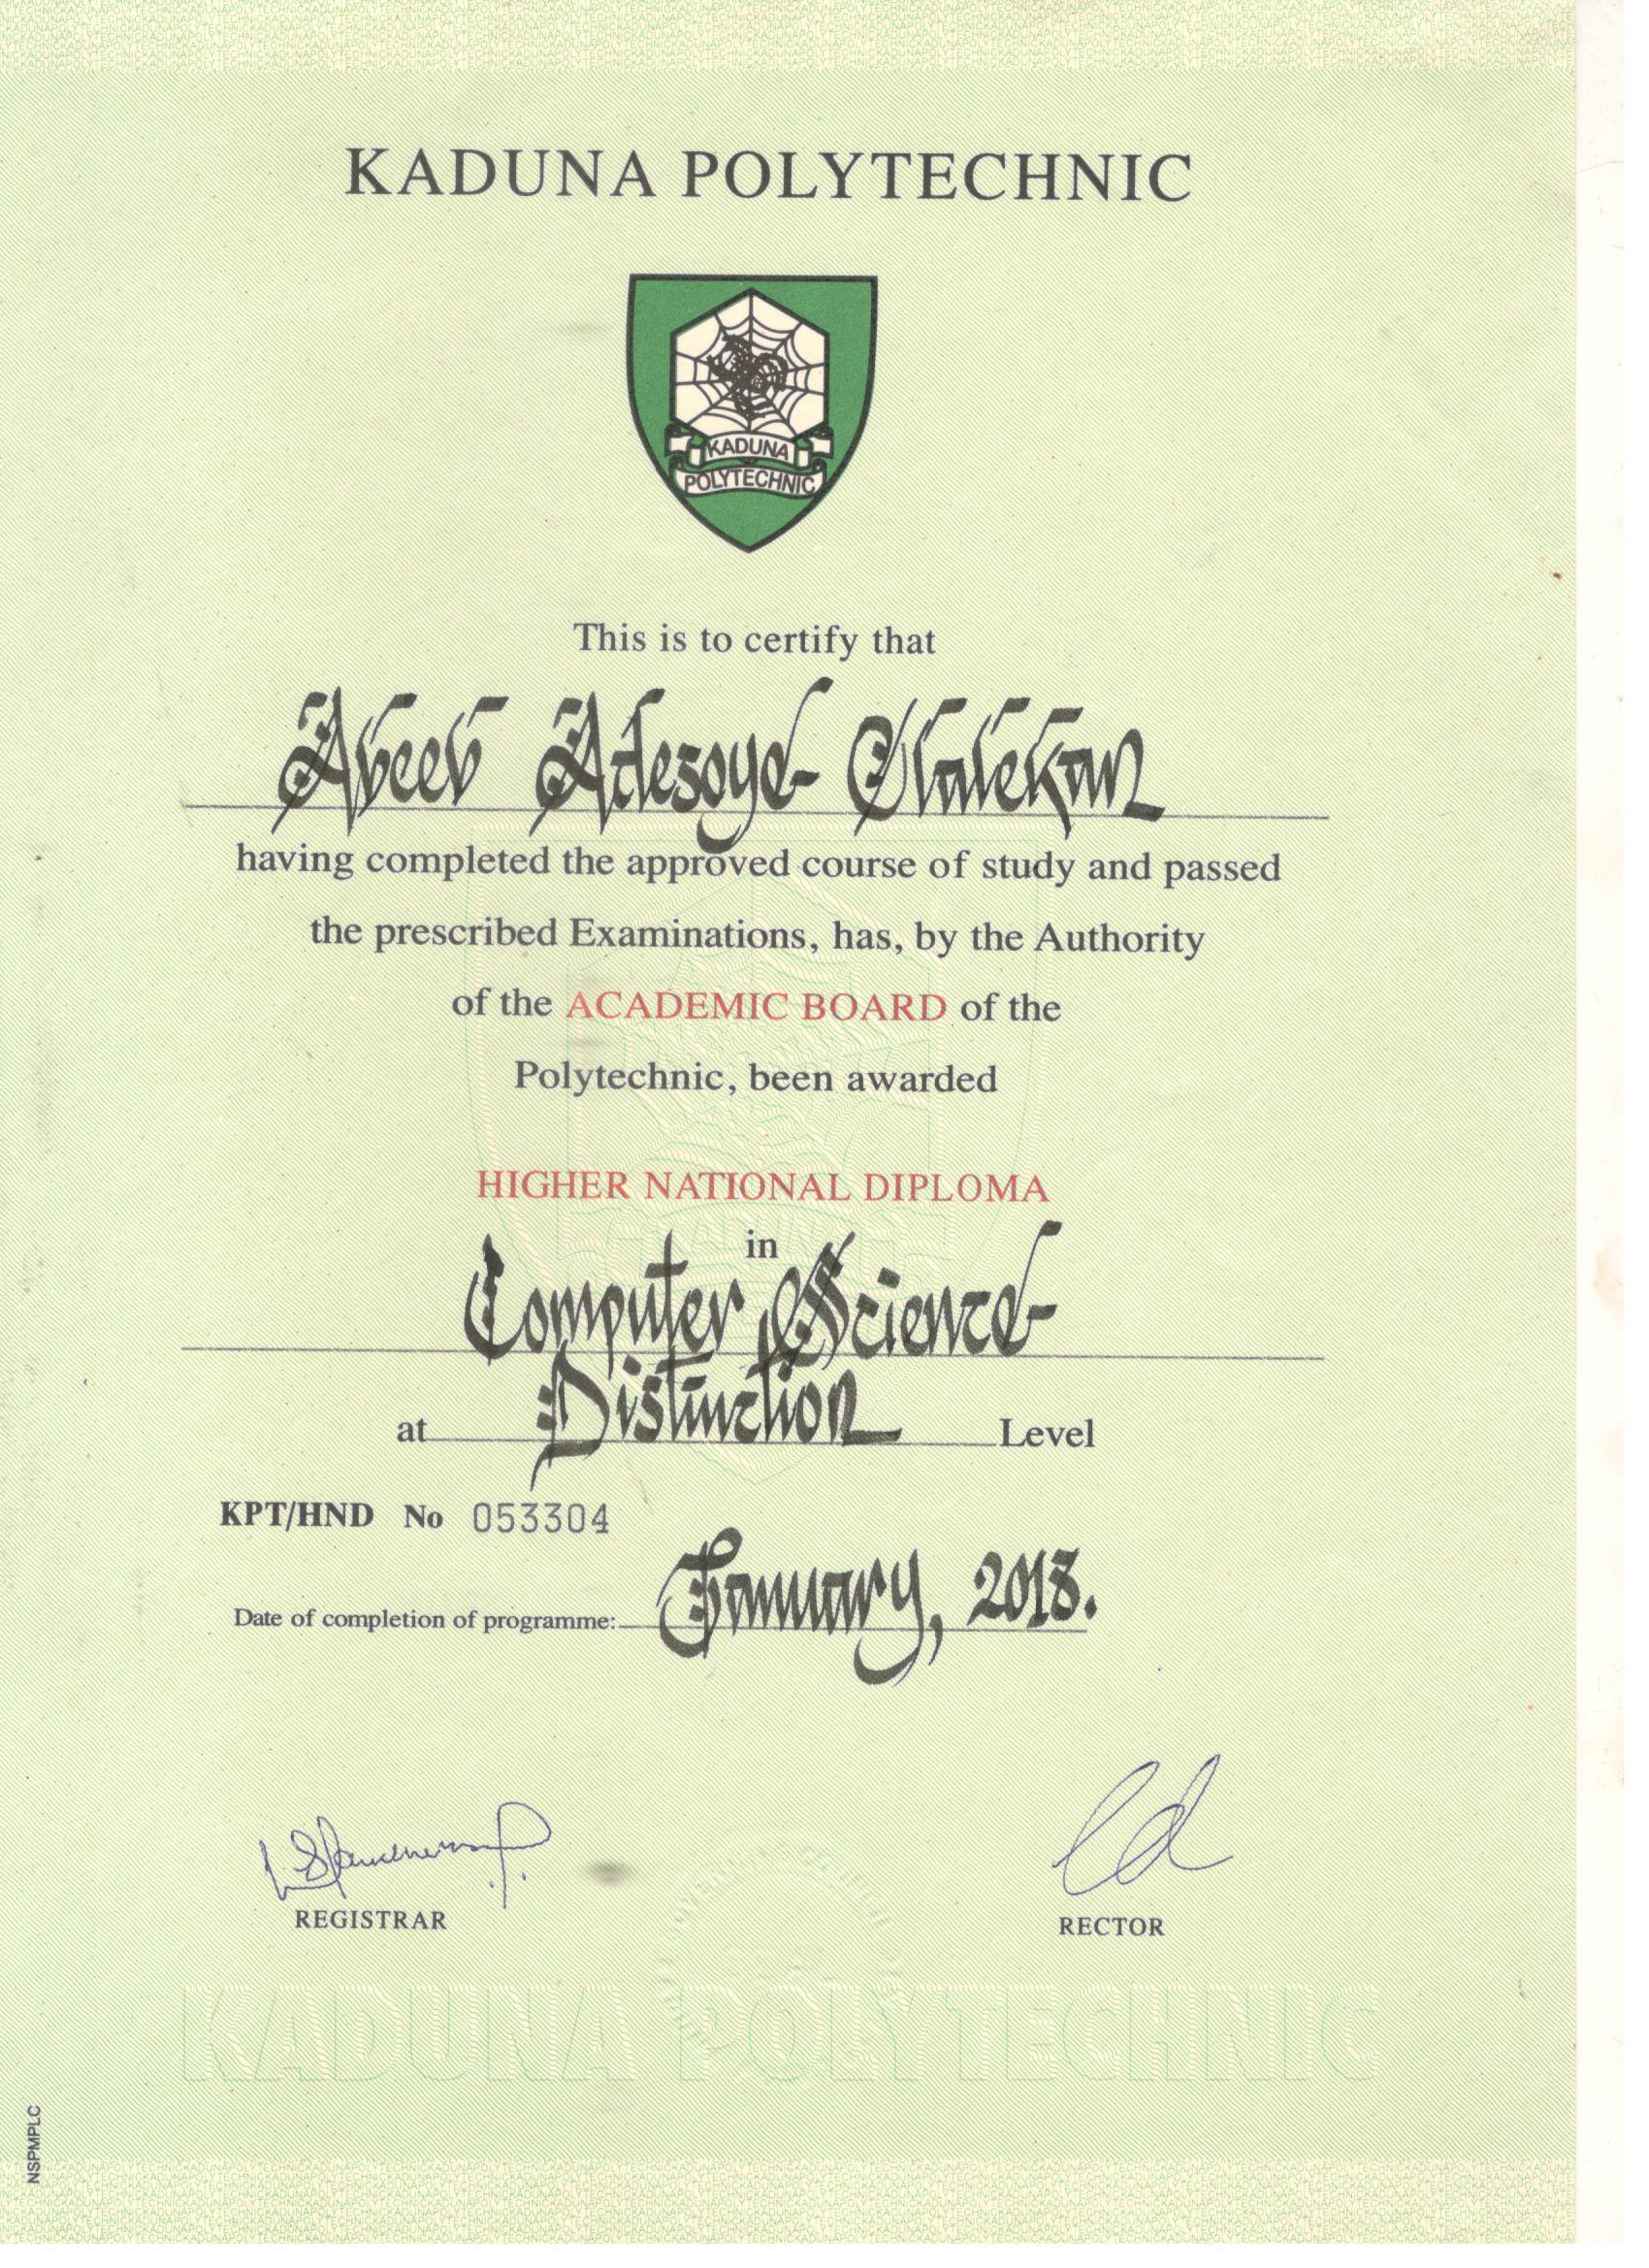 KADUNA POLYTECHNIC
KADUNA
POLYTECHNIC
This is to certify that
Abeeb Adesoye Olalekan
having completed the approved course of study and passed
the prescribed Examinations, has, by the Authority
of the ACADEMIC BOARD of the
Polytechnic, been awarded
HIGHER NATIONAL DIPLOMA
in
Computer Science
at Distinction Level
KPT/HND No 053304
Date of completion of programme: January, 2018.
REGISTRAR
RECTOR
KADUNA POLYTECHNIC
NSPMPLC